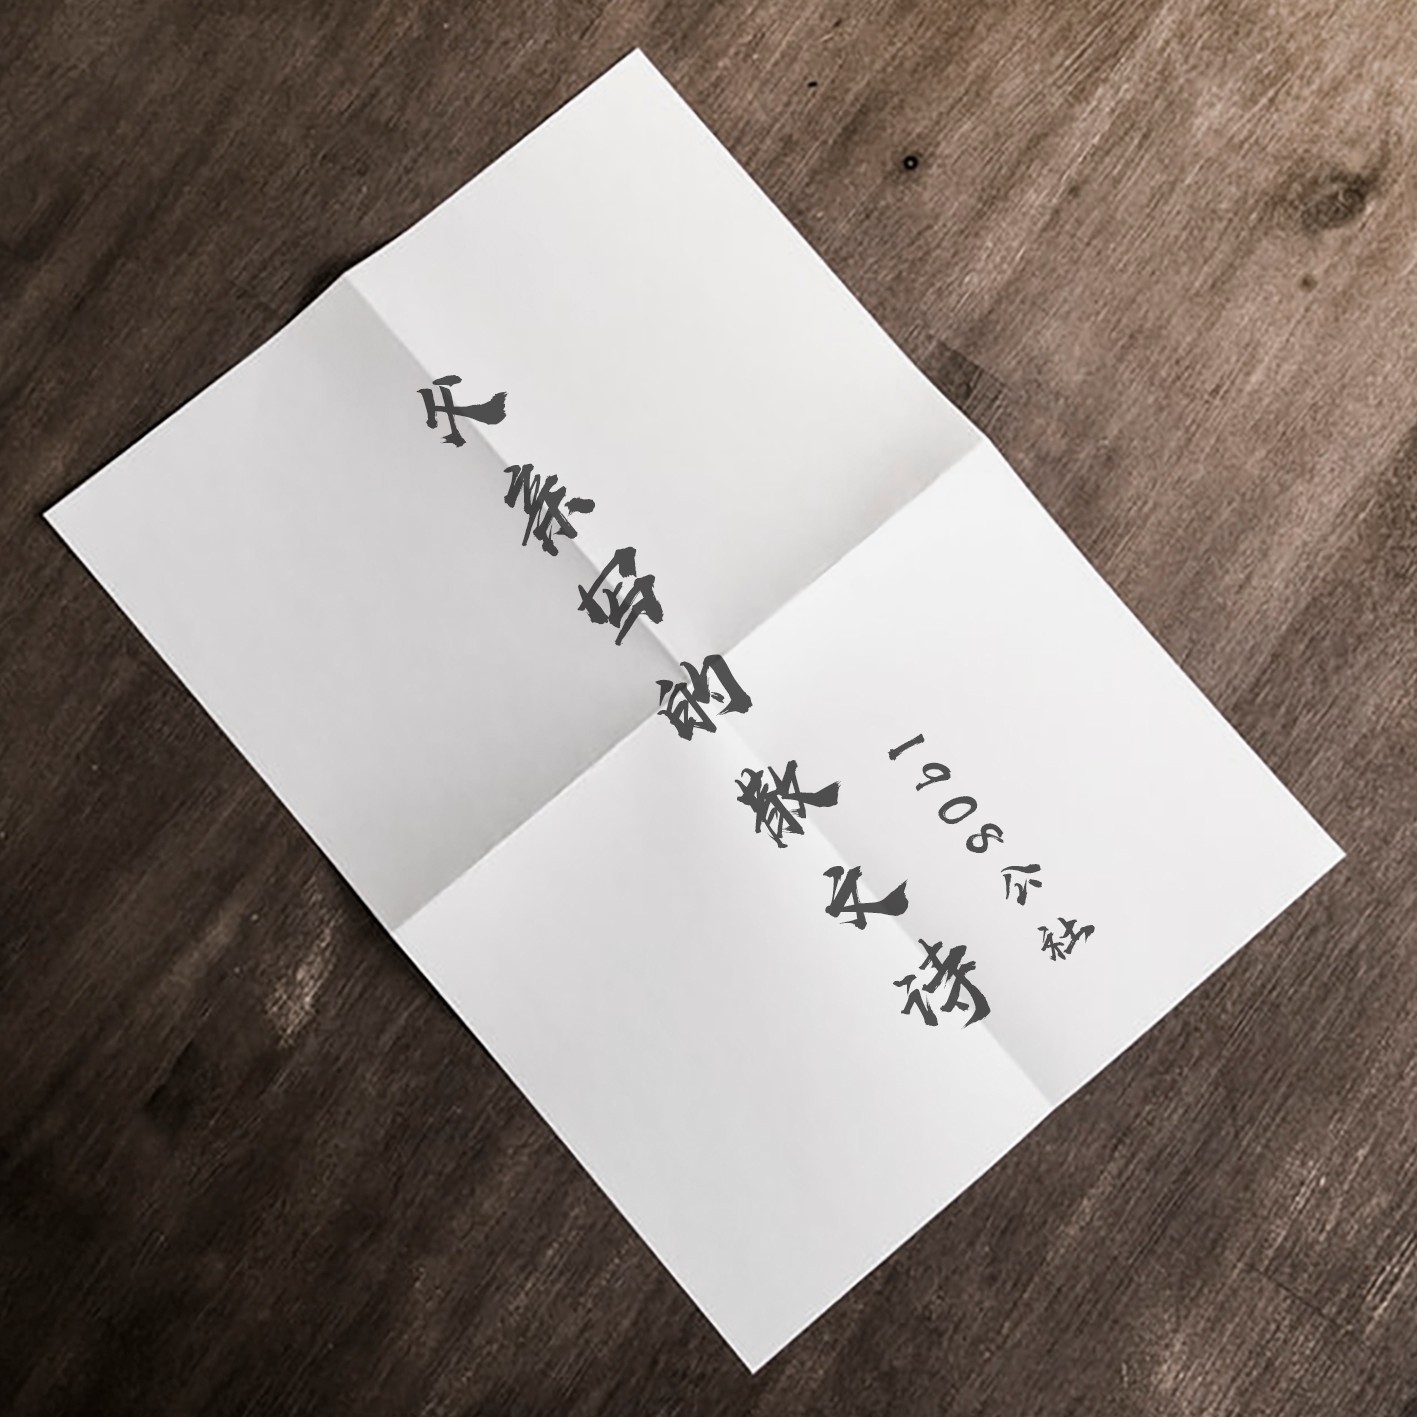 父亲写的散文诗
1908公社